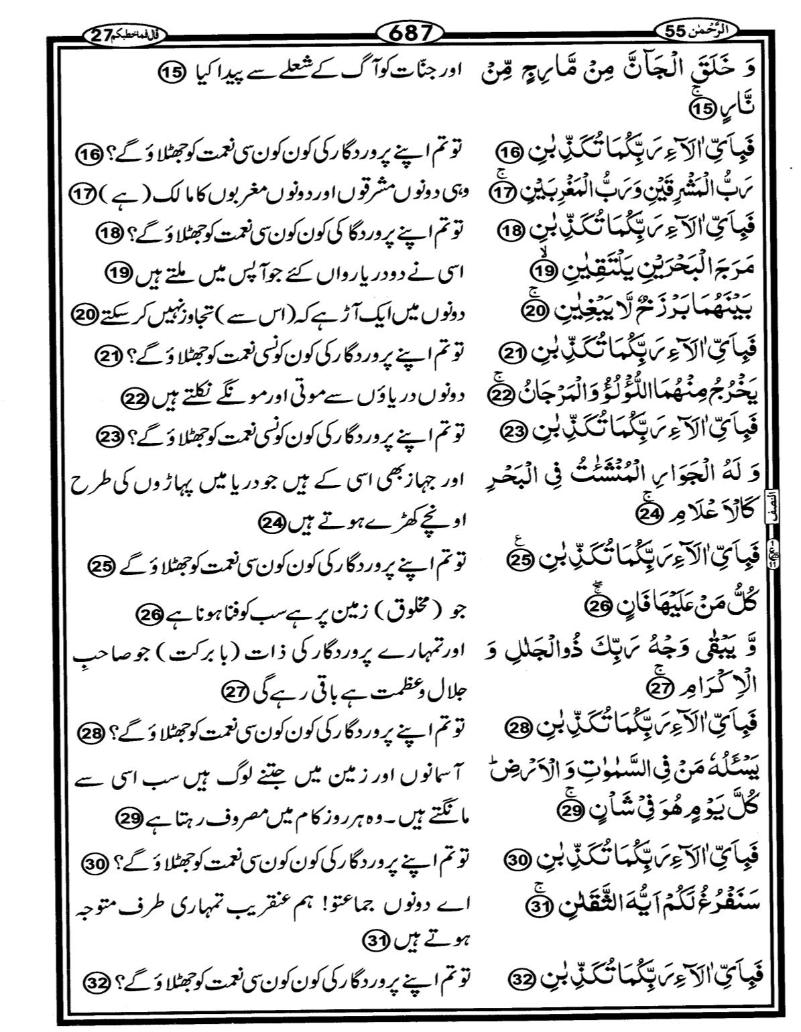 الرَّحْمٰن 55
687
قال فما خطبكم 27
وَ خَلَقَ الْجَآنَّ مِنْ مَّارِجٍ مِّنْ
نَّارٍ ۚ 15
اور جنّات کو آگ کے شعلے سے پیدا کیا 15
فَبِاَيِّ اٰلَآءِ رَبِّكُمَا تُكَذِّبٰنِ 16
تو تم اپنے پروردگار کی کون کون سی نعمت کو جھٹلاؤ گے؟ 16
رَبُّ الْمَشْرِقَيْنِ وَ رَبُّ الْمَغْرِبَيْنِ ۚ 17
وہی دونوں مشرقوں اور دونوں مغربوں کا مالک (ہے) 17
فَبِاَيِّ اٰلَآءِ رَبِّكُمَا تُكَذِّبٰنِ 18
تو تم اپنے پروردگار کی کون کون سی نعمت کو جھٹلاؤ گے؟ 18
مَرَجَ الْبَحْرَيْنِ يَلْتَقِيٰنِ ۙ 19
اسی نے دو دریا رواں کئے جو آپس میں ملتے ہیں 19
بَيْنَهُمَا بَرْزَخٌ لَّا يَبْغِيٰنِ ۚ 20
دونوں میں ایک آڑ ہے کہ (اس سے) تجاوز نہیں کر سکتے 20
فَبِاَيِّ اٰلَآءِ رَبِّكُمَا تُكَذِّبٰنِ 21
تو تم اپنے پروردگار کی کون کونسی نعمت کو جھٹلاؤ گے؟ 21
يَخْرُجُ مِنْهُمَا اللُّؤْلُؤُ وَ الْمَرْجَانُ ۚ 22
دونوں دریاؤں سے موتی اور مونگے نکلتے ہیں 22
فَبِاَيِّ اٰلَآءِ رَبِّكُمَا تُكَذِّبٰنِ 23
تو تم اپنے پروردگار کی کون کونسی نعمت کو جھٹلاؤ گے؟ 23
وَ لَهُ الْجَوَارِ الْمُنْشَئٰتُ فِي الْبَحْرِ
كَالْاَعْلَامِ ۚ 24
النصف
اور جہاز بھی اسی کے ہیں جو دریا میں پہاڑوں کی طرح
اونچے کھڑے ہوتے ہیں 24
فَبِاَيِّ اٰلَآءِ رَبِّكُمَا تُكَذِّبٰنِ ۧ 25
تو تم اپنے پروردگار کی کون کون سی نعمت کو جھٹلاؤ گے 25
كُلُّ مَنْ عَلَيْهَا فَانٍ ۖۚ 26
جو (مخلوق) زمین پر ہے سب کو فنا ہونا ہے 26
وَّ يَبْقٰى وَجْهُ رَبِّكَ ذُو الْجَلٰلِ وَ
الْاِكْرَامِ ۚ 27
اور تمہارے پروردگار کی ذات (بابرکت) جو صاحبِ
جلال وعظمت ہے باقی رہے گی 27
فَبِاَيِّ اٰلَآءِ رَبِّكُمَا تُكَذِّبٰنِ 28
تو تم اپنے پروردگار کی کون کون سی نعمت کو جھٹلاؤ گے؟ 28
يَسْئَلُهٗ مَنْ فِي السَّمٰوٰتِ وَ الْاَرْضِ ؕ
كُلَّ يَوْمٍ هُوَ فِيْ شَاْنٍ ۚ 29
آسمانوں اور زمین میں جتنے لوگ ہیں سب اسی سے
مانگتے ہیں۔ وہ ہر روز کام میں مصروف رہتا ہے 29
فَبِاَيِّ اٰلَآءِ رَبِّكُمَا تُكَذِّبٰنِ 30
تو تم اپنے پروردگار کی کون کون سی نعمت کو جھٹلاؤ گے؟ 30
سَنَفْرُغُ لَكُمْ اَيُّهَ الثَّقَلٰنِ ۚ 31
اے دونوں جماعتو! ہم عنقریب تمہاری طرف متوجہ
ہوتے ہیں 31
فَبِاَيِّ اٰلَآءِ رَبِّكُمَا تُكَذِّبٰنِ 32
تو تم اپنے پروردگار کی کون کون سی نعمت کو جھٹلاؤ گے؟ 32